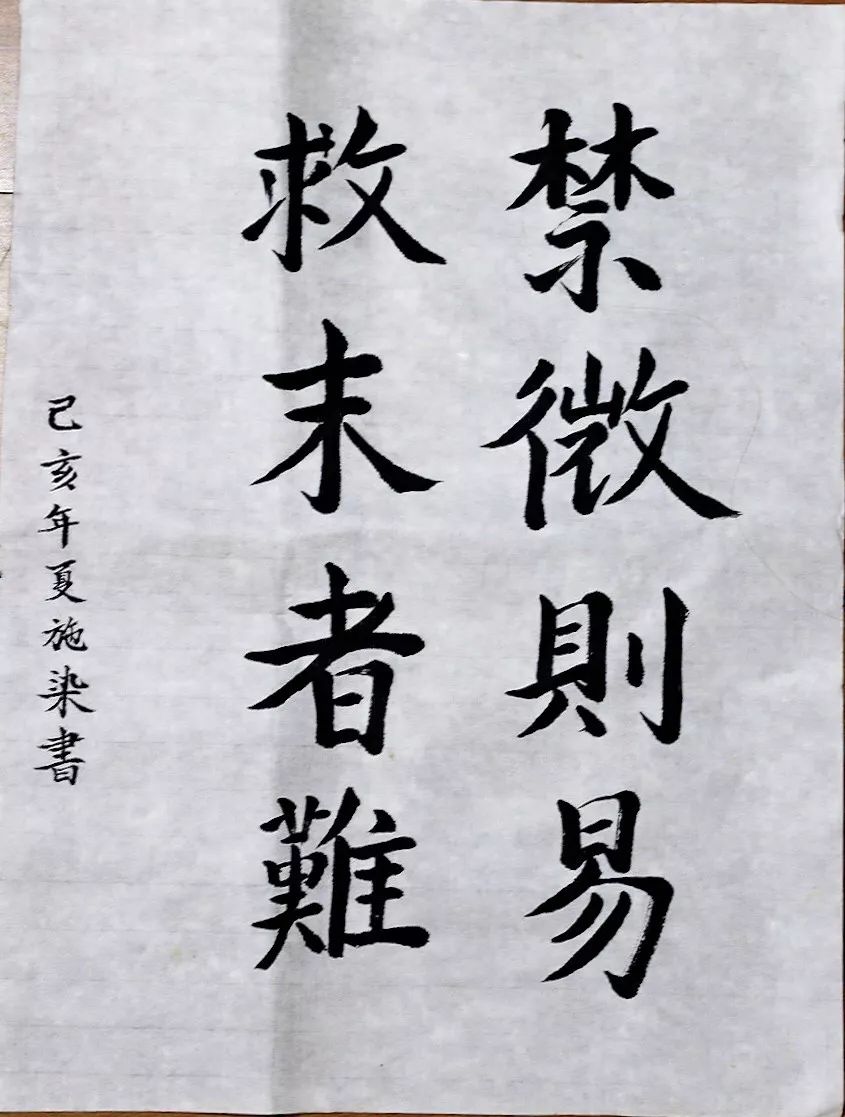 禁微則易
救末者難
己亥年夏施染書